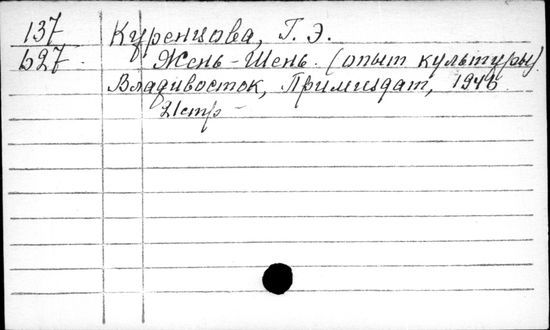 137 Куренцова, Г. Э.
627 Жень-Шень. (опыт культуры).
Владивосток, Примиздат,
21 стр